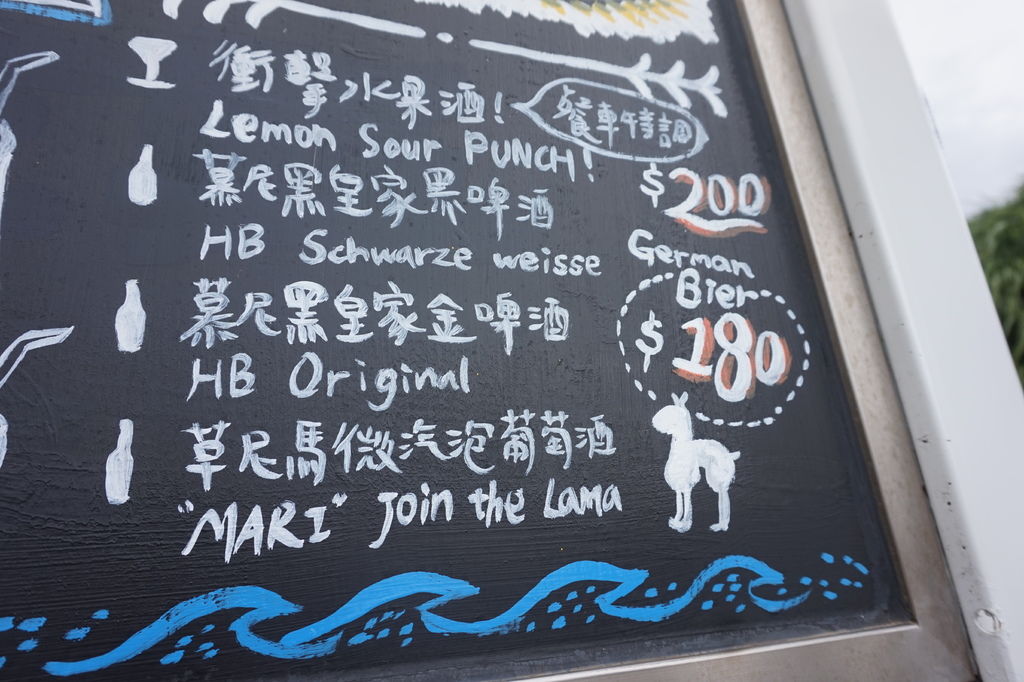 衝擊水果酒!
餐車特調
Lemon Sour PUNCH!
$200
慕尼黑皇家黑啤酒
HB Schwarze weisse
German
Bier
$180
慕尼黑皇家金啤酒
HB Original
草尼馬微汽泡葡萄酒
"MARI" Join the Lama